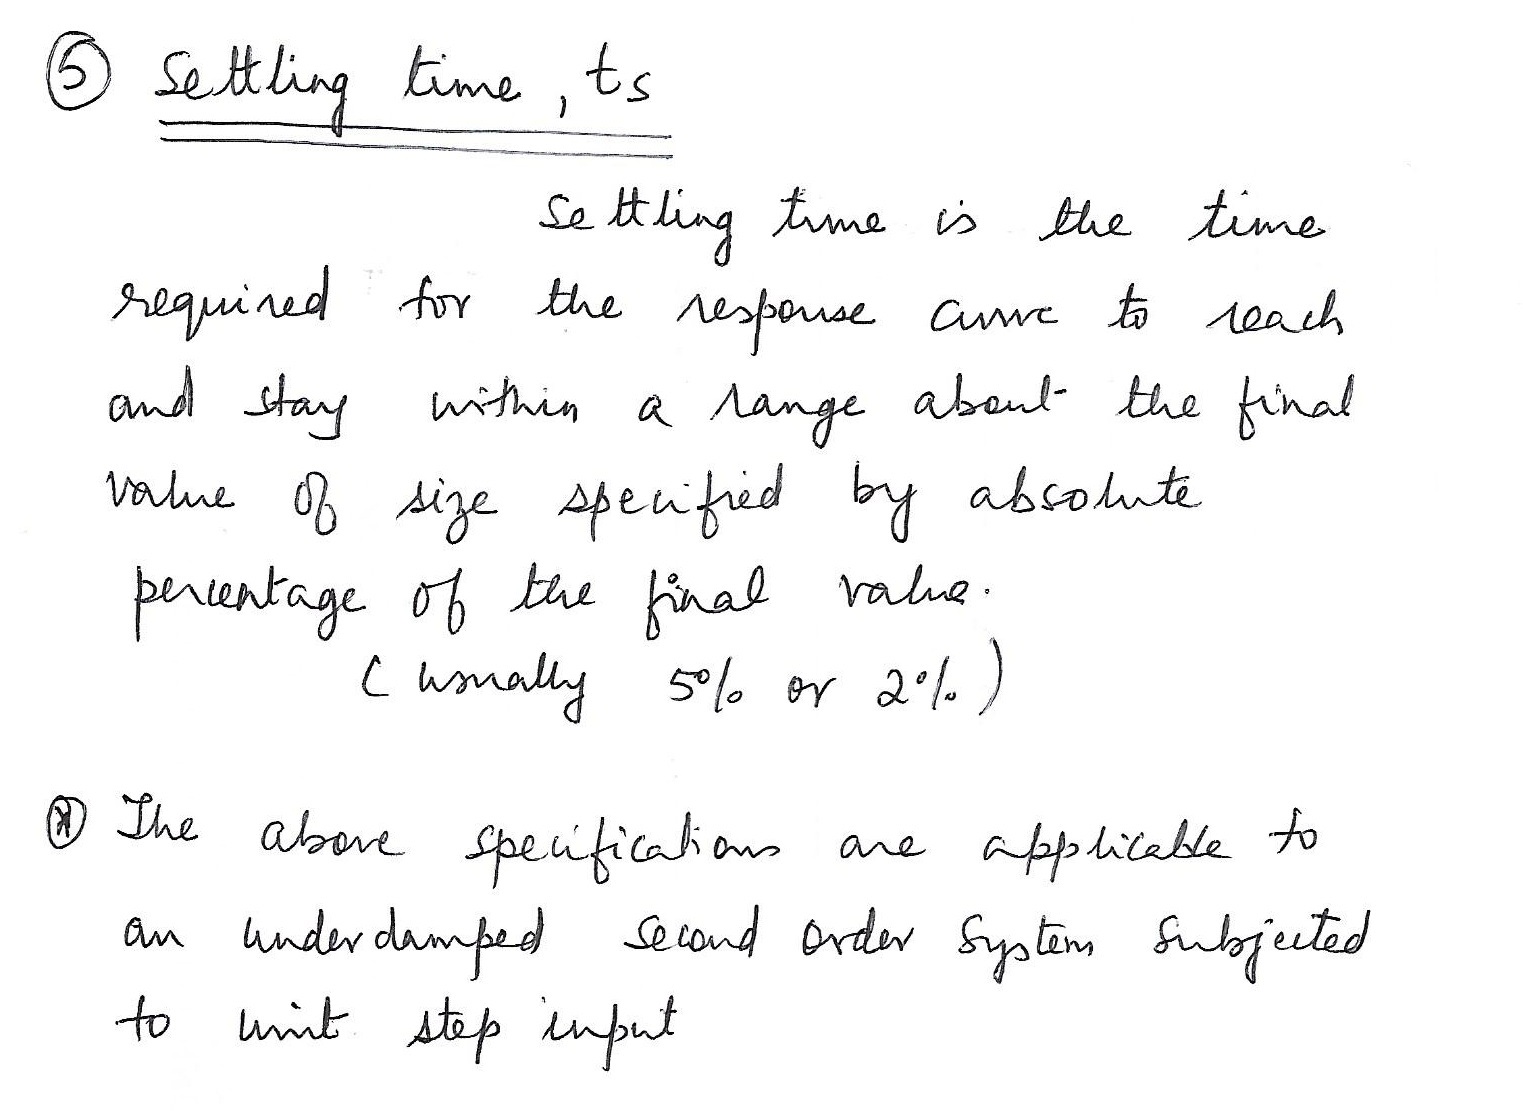 ⑤ Settling time, ts
Settling time is the time
required for the response curve to reach
and stay within a range about the final
value of size specified by absolute
percentage of the final value.
(usually 5% or 2%)
* The above specifications are applicable to
an underdamped second order system subjected
to unit step input